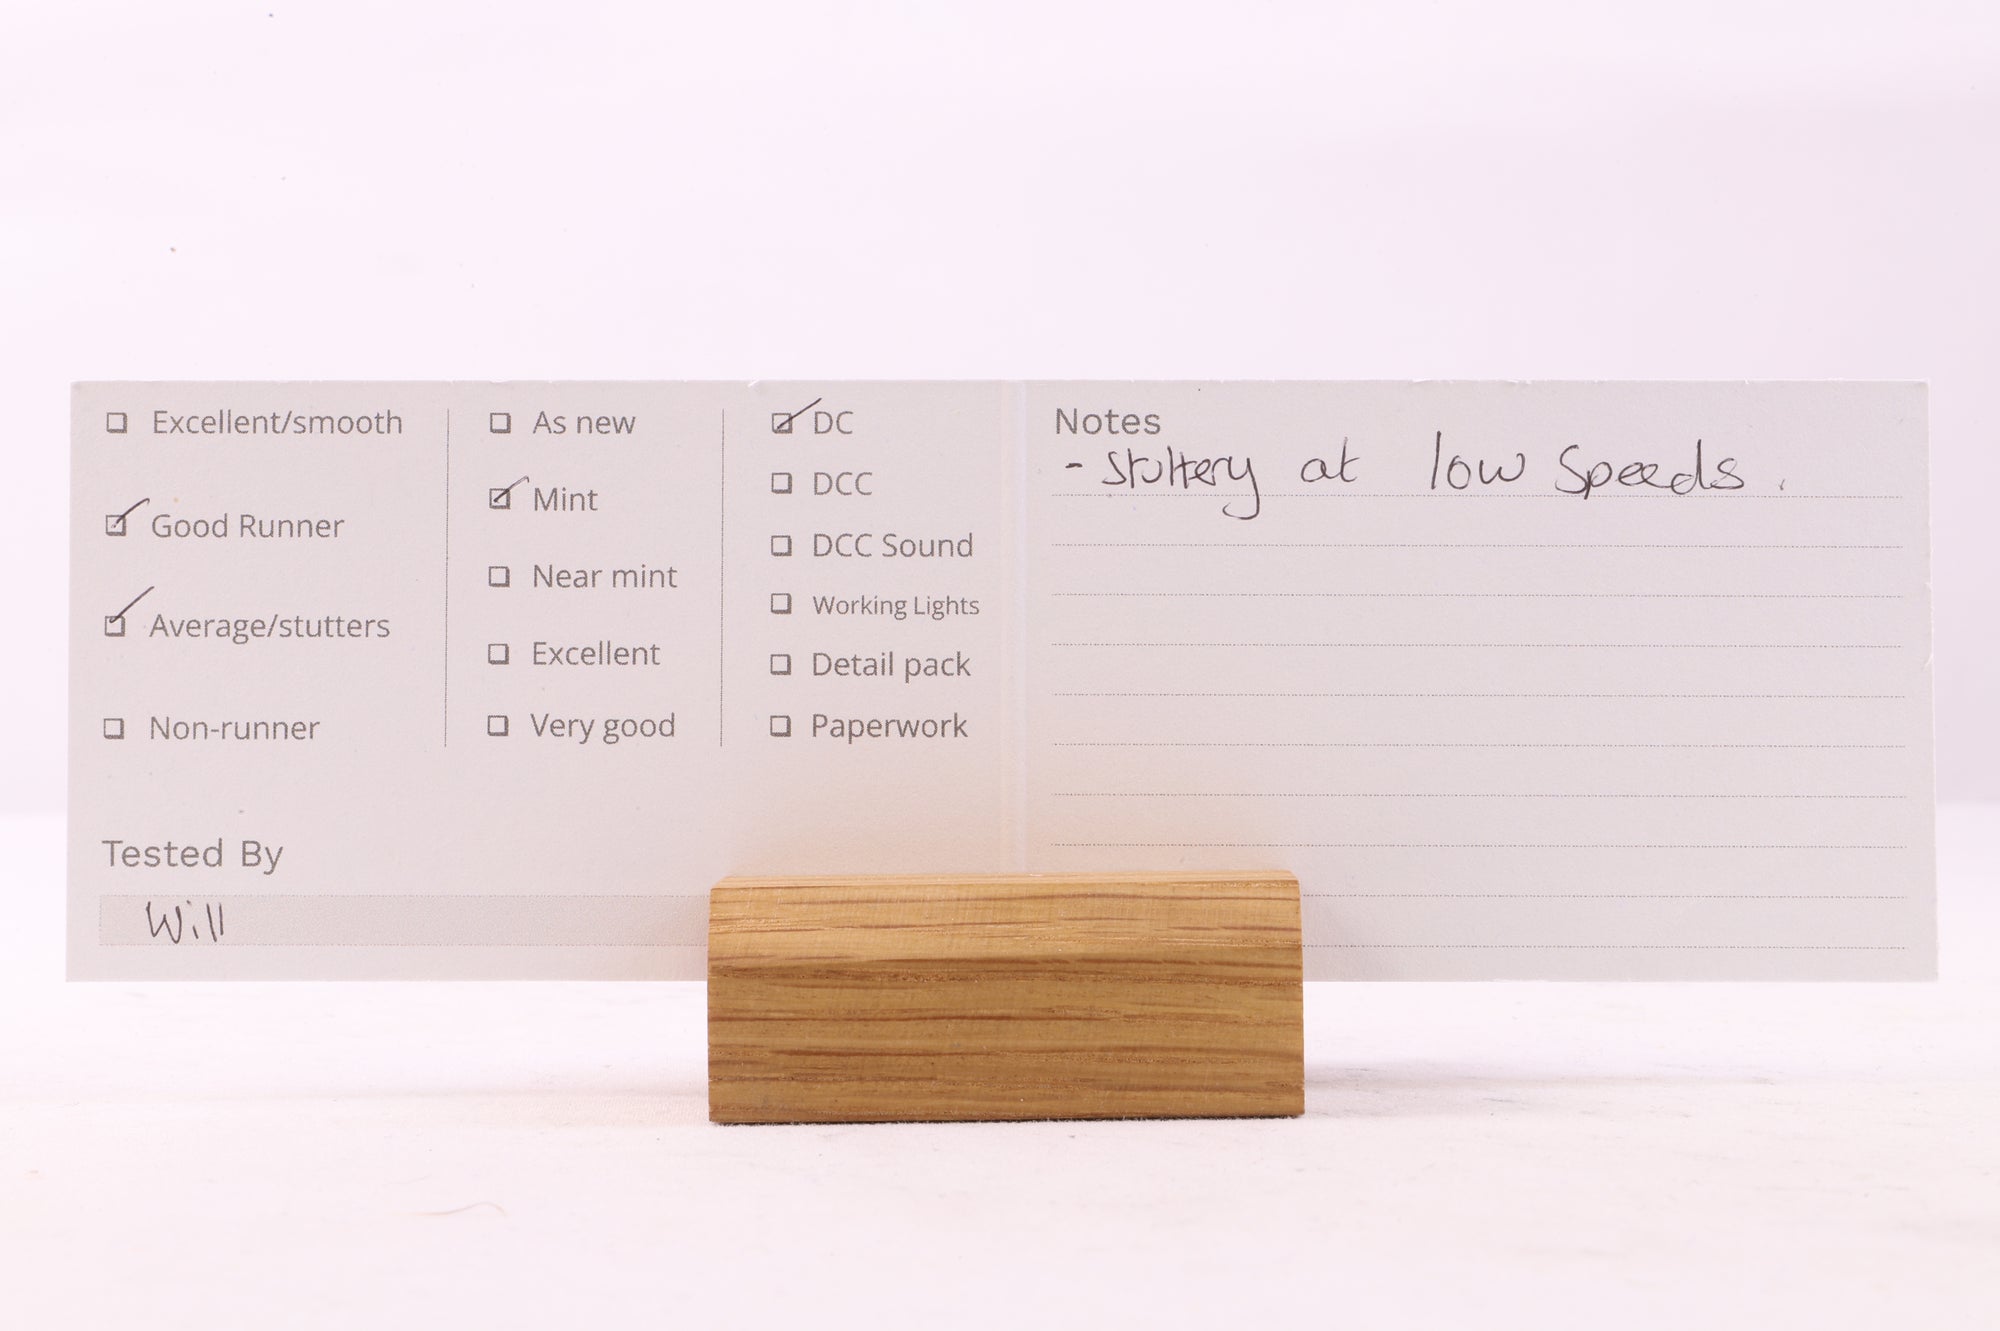 Excellent/smooth
Good Runner
Average/stutters
Non-runner
As new
Mint
Near mint
Excellent
Very good
DC
DCC
DCC Sound
Working Lights
Detail pack
Paperwork
Tested By
Will
Notes
- Stuttery at low Speeds.